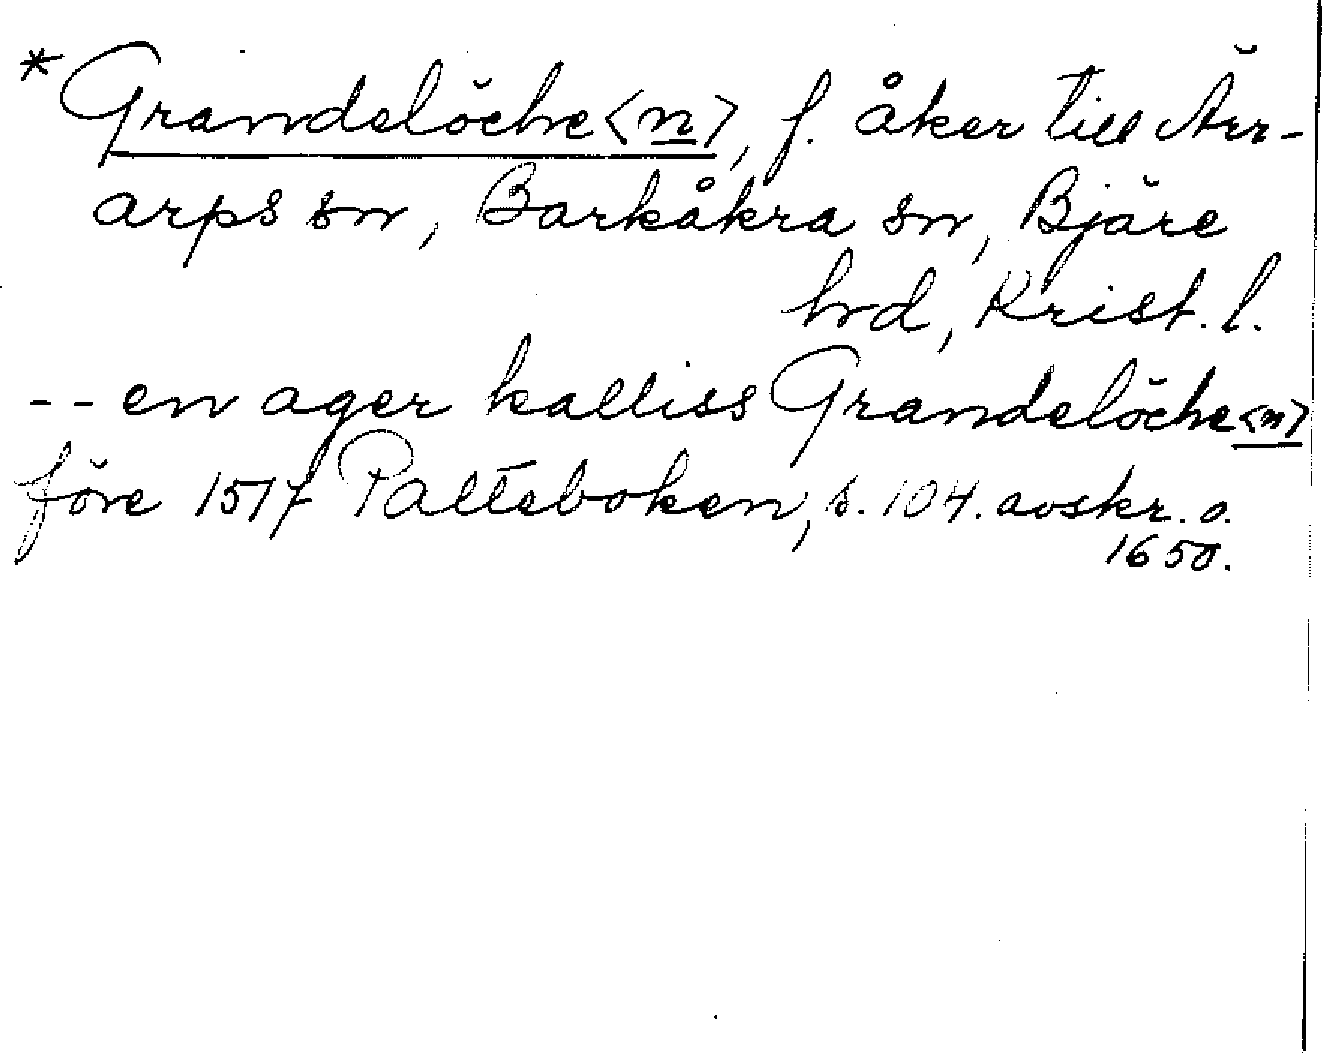 *Grandelöche<n>, f. åker till Ärr-
arps sn, Barkåkra sn, Bjäre
hrd, Krist. l.
-- en ager kalliss Grandelöche<n>
före 1517 Palteboken, s. 104. avskr. o.
1650.